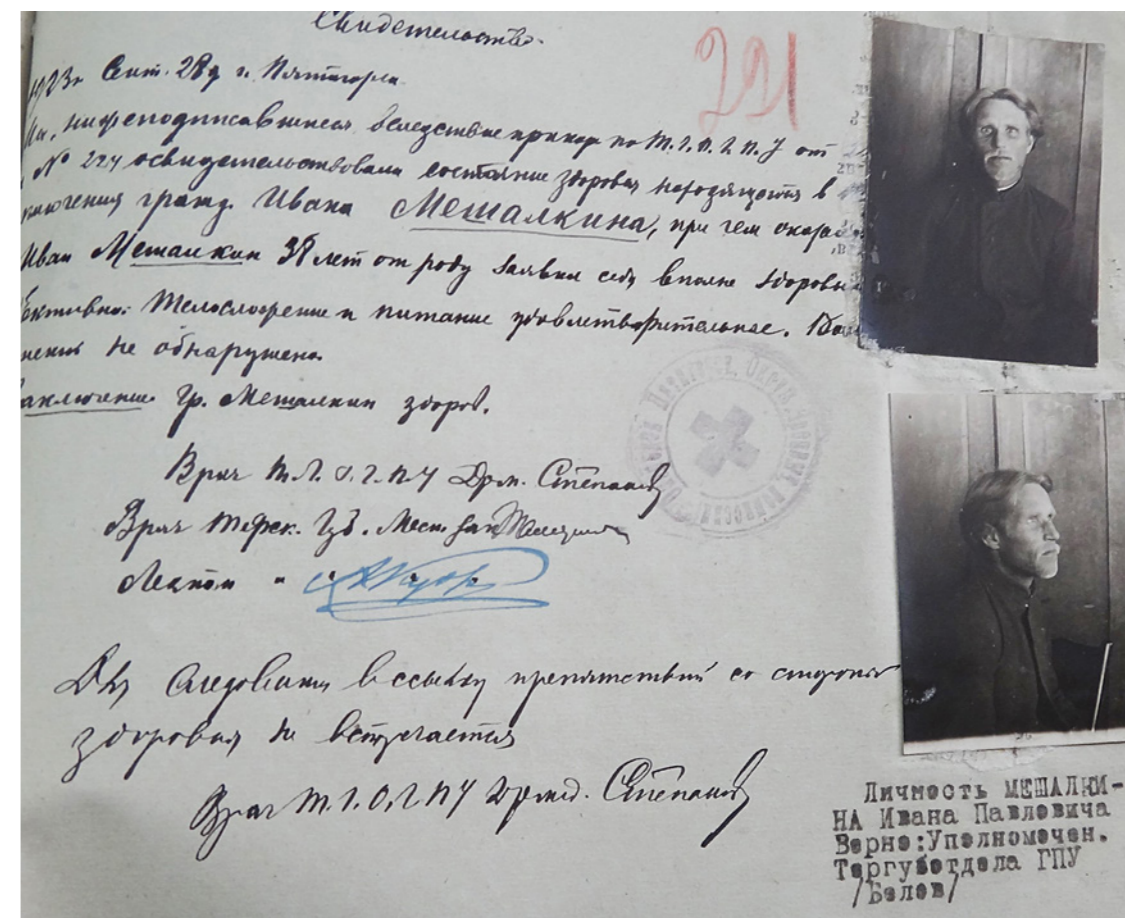 Свидетельство.
221
1923г. Сент. 28д г. Пятигорск
нижеподписавшиеся вследствие по Т.Г.О.Г.П.У от
№ 224 освидетельствовали состояние здоровья находящегося в
заключения гражд. Ивана Мешалкина, при чем оказа
Иван Мешалкин 38 лет от роду заявил себя вполне здоровы
ективно: Телосложение и питание удовлетворительное.
не обнаружено.
Заключение Гр. Мешалкин здоров.
Врач Т.Г.О.Г.П.У Др.м. Степанов
Врач
Лекпом
Для следования в ссылку препятствий со стороны
здоровья не встречается
Врач Т.Г.О.Г.П.У Др.мед. Степанов
Личность МЕШАЛКИ-
НА Ивана Павловича
Верно:Уполномочен.
Тергуботдела ГПУ
/Белов/